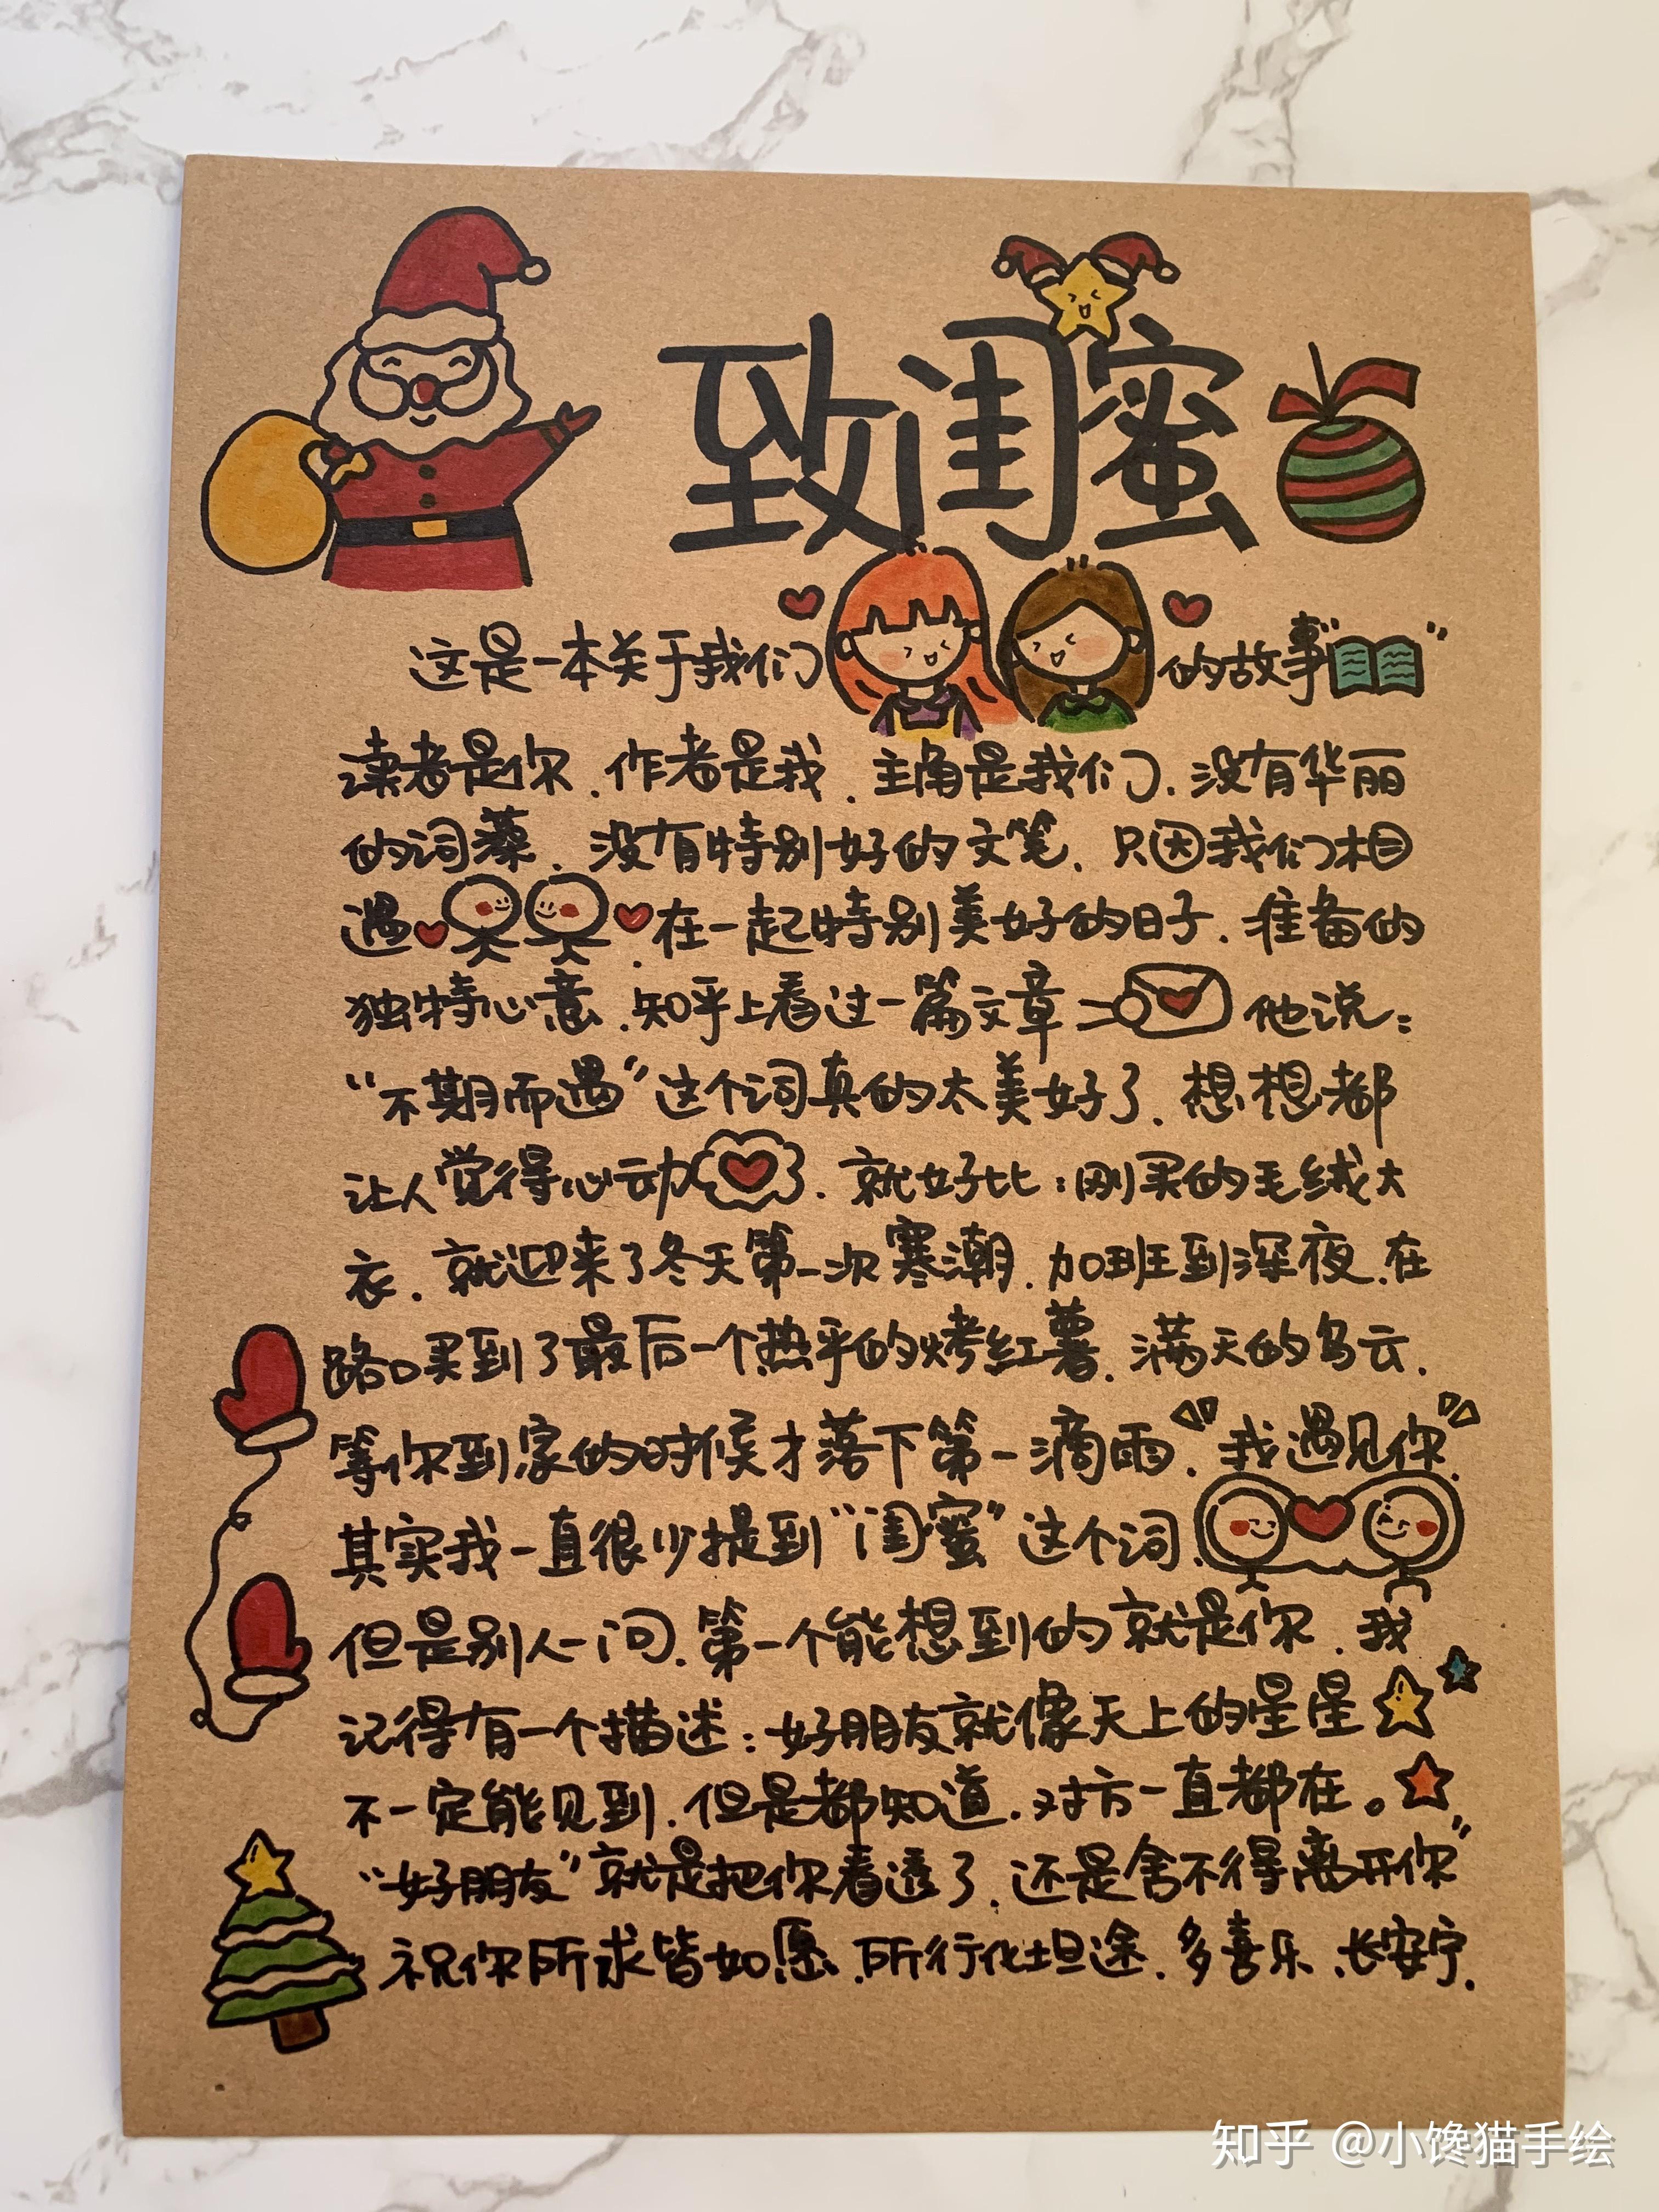 致闺蜜
这是一本关于我们的故事“ ”
读者是你.作者是我.主角是我们.没有华丽
的词藻.没有特别好的文笔.只因我们相
遇.在一起特别美好的日子.准备的
独特心意.知乎上看过一篇文章 他说:
“不期而遇”这个词真的太美好了.想想都
让人觉得心动.就好比:刚买的毛绒大
衣.就迎来了冬天第一次寒潮.加班到深夜.在
路口买到了最后一个热乎的烤红薯.满天的乌云.
等你到家的时候才落下第一滴雨.我遇见你.
其实我一直很少提到“闺蜜”这个词.
但是别人一问.第一个能想到的就是你.我
记得有一个描述:好朋友就像天上的星星
不一定能见到.但是都知道.对方一直都在。
“好朋友”就是把你看透了.还是舍不得离开你”
祝你所求皆如愿.所行化坦途.多喜乐.长安宁.
知乎 @小馋猫手绘